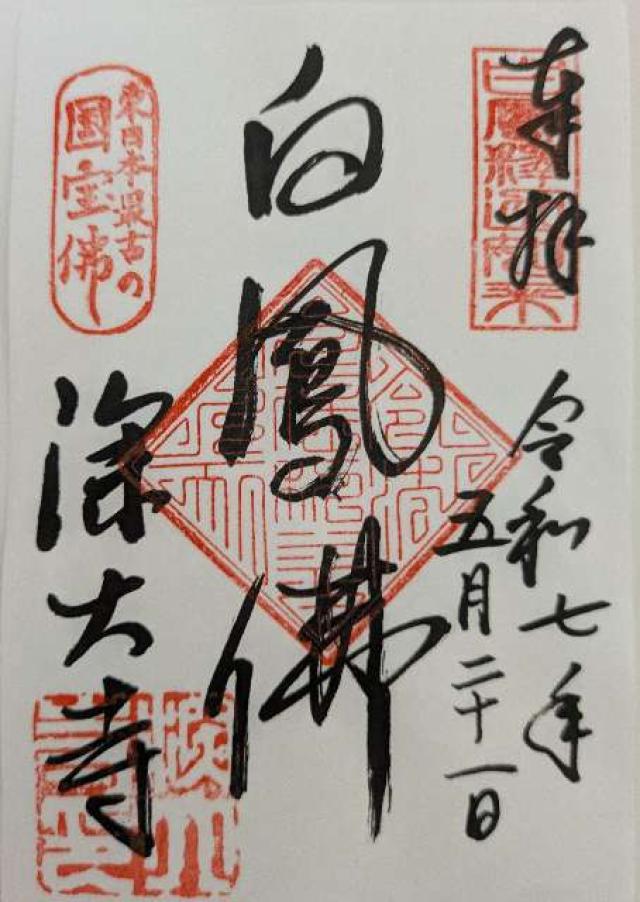 奉拝
令和七年
五月二十一日
白鳳佛
東日本最古の
国宝佛
深大寺